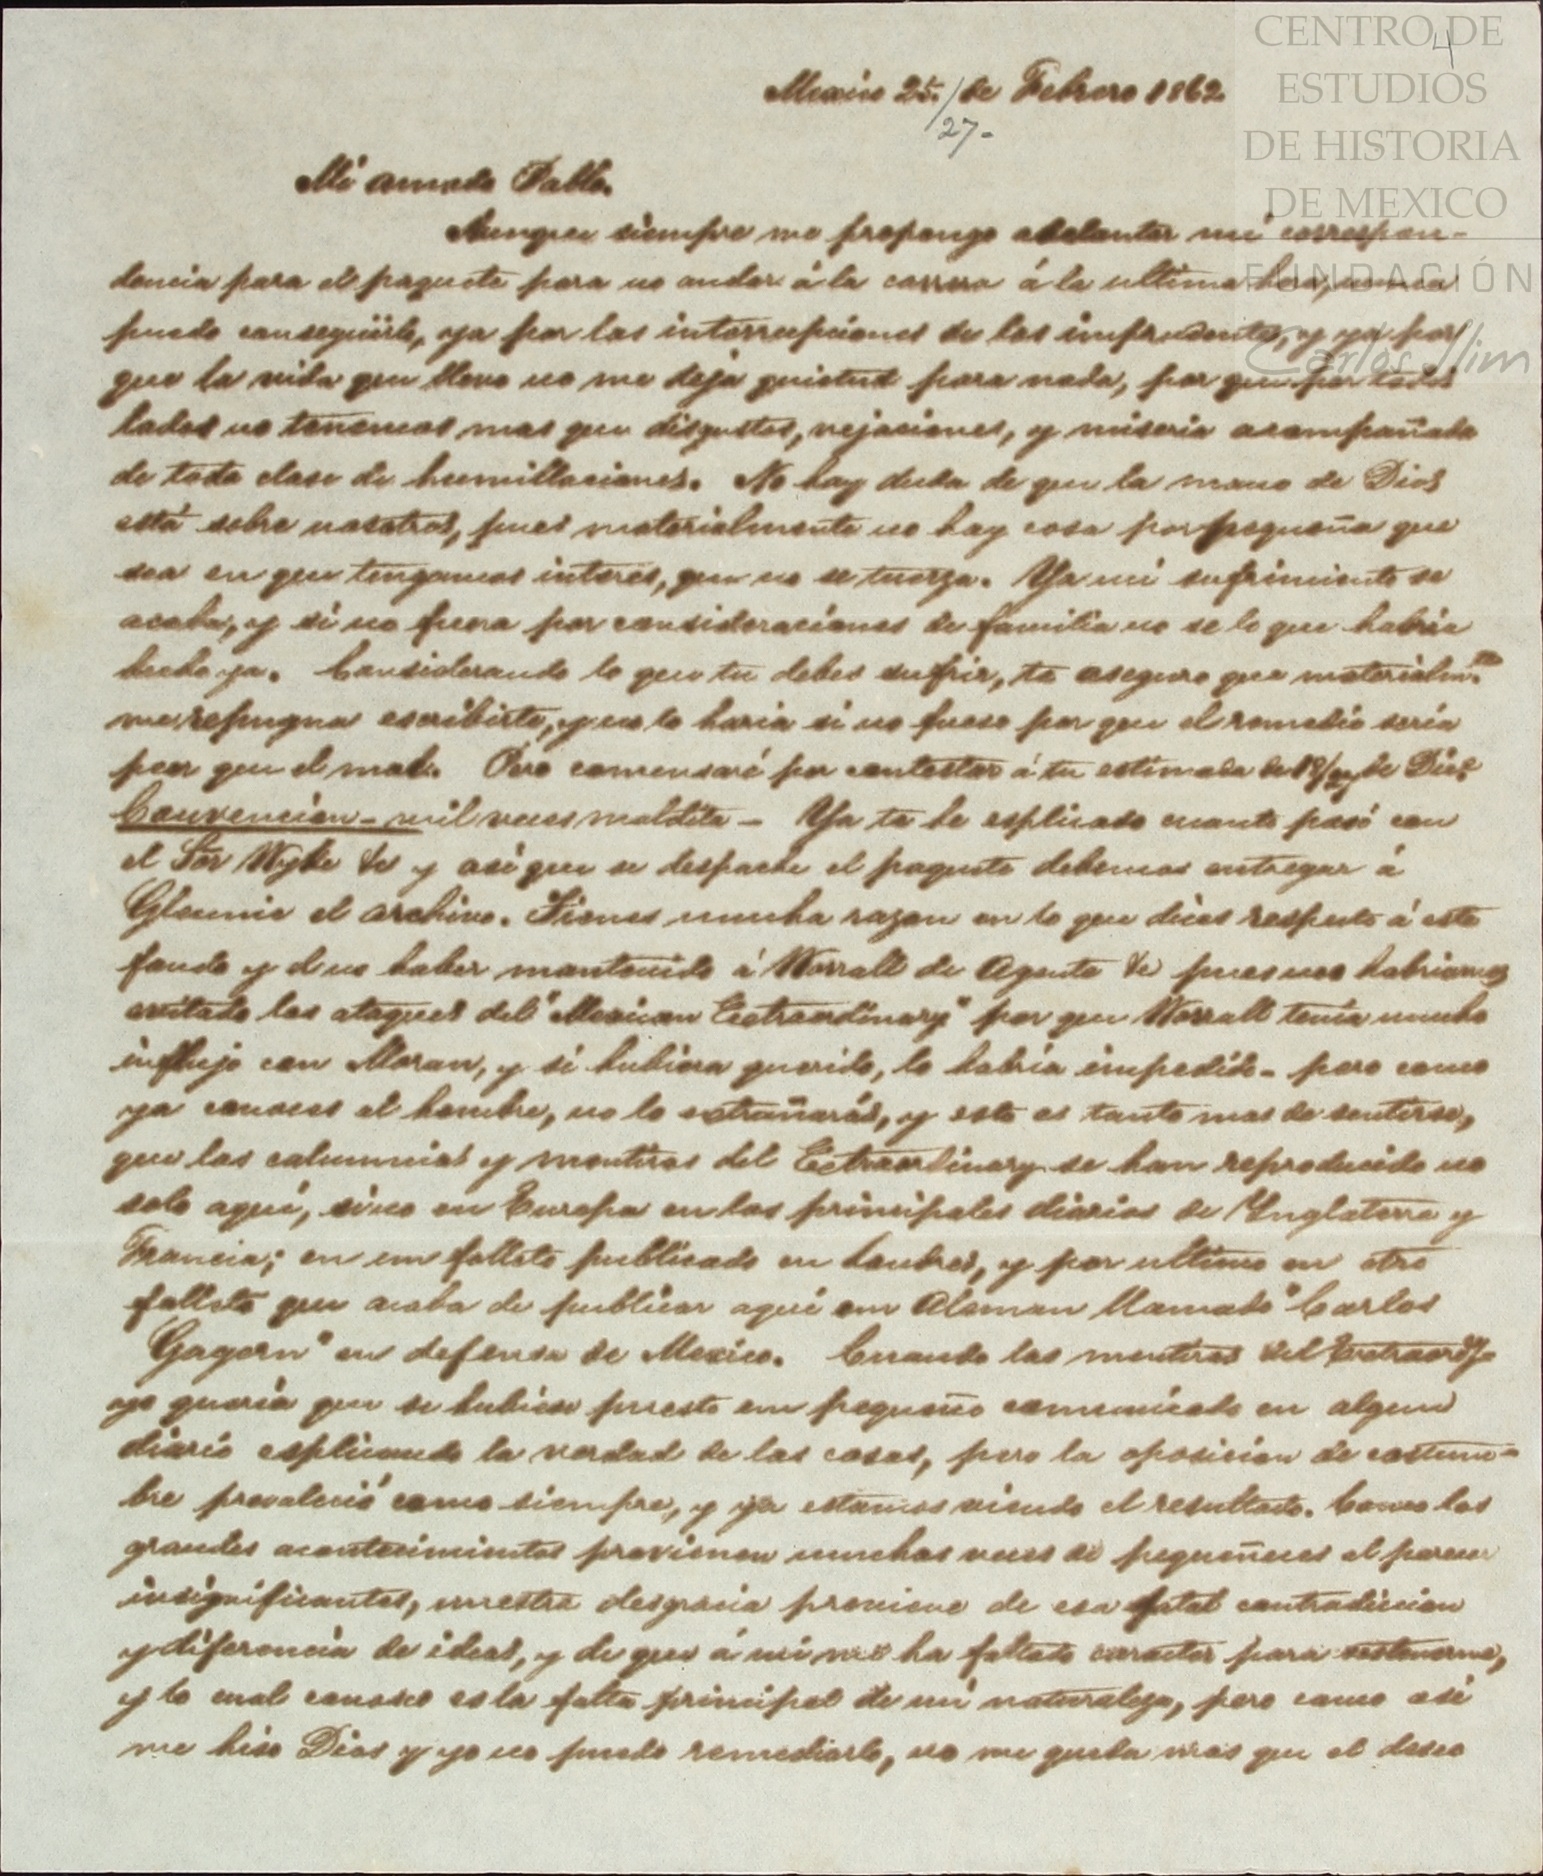 CENTRO DE
ESTUDIOS
DE HISTORIA
DE MEXICO
FUNDACIÓN
Carlos Slim
4
Mexico 25./de Febrero 1862.
27.-
Mi amado Pablo.
Aunque siempre me propongo adelantar mi correspon-
dencia para el paquete para no andar á la carrera á la ultima hora, nunca
puedo conseguirlo, ya por las interrupciones de los imprudentes, y ya por
que la vida que llevo no me deja quietud para nada, por que por todos
lados no tenemos mas que disgustos, vejaciones, y miseria acompañada
de toda clase de humillaciones. No hay duda de que la mano de Dios
está sobre nosotros, pues materialmente no hay cosa por pequeña que
sea en que tengamos interes, que no se tuerza. Ya mi sufrimiento se
acaba, y si no fuera por consideraciones de familia no se lo que habria
hecho ya. Considerando lo que tu debes sufrir, te aseguro que materialm.te
me repugna escribirte, y no lo haria si no fuese por que el remedio seria
peor que el mal. Pero comensaré por contestar á tu estimada de de Dic.e
Convencion - mil veces maldita - Ya te he esplicado cuanto pasó con
el Sor Wyke &c y asi que se despache el paquete debemos entregar á
Glennie el archivo. Tienes mucha razon en lo que dices respecto á este
fondo y el no haber mantenido á Worrall de Agente &c pues nos habriamos
evitado los ataques del "Mexican Extraordinary" por que Worrall tenia mucho
influjo con Moran, y si hubiera querido, lo habria impedido - pero como
ya conoces al hombre, no lo extrañarás, y esto es tanto mas de sentirse,
que las calumnias y mentiras del Extraordinary se han reproducido no
solo aqui, sino en Europa en los principales diarios de Ynglaterra y
Francia; en un folleto publicado en Londres, y por ultimo en otro
folleto que acaba de publicar aqui un Aleman llamado "Carlos
Gagern" en defensa de Mexico. Cuando las mentiras del Extraordy-
yo queria que se hubiese puesto un pequeño comunicado en algun
diario esplicando la verdad de las cosas, pero la oposicion de costum-
bre prevaleció como siempre, y ya estamos viendo el resultado. Como los
grandes acontecimientos provienen muchas veces de pequeñeces al parecer
insignificantes, nuestra desgracia proviene de esa fatal contradiccion
y diferencia de ideas, y de que á mi me ha faltado caracter para sostenerme,
y lo cual conosco es la falta principal de mi naturaleza, pero como asi
me hiso Dios y yo no puedo remediarlo, no me queda mas que el deseo